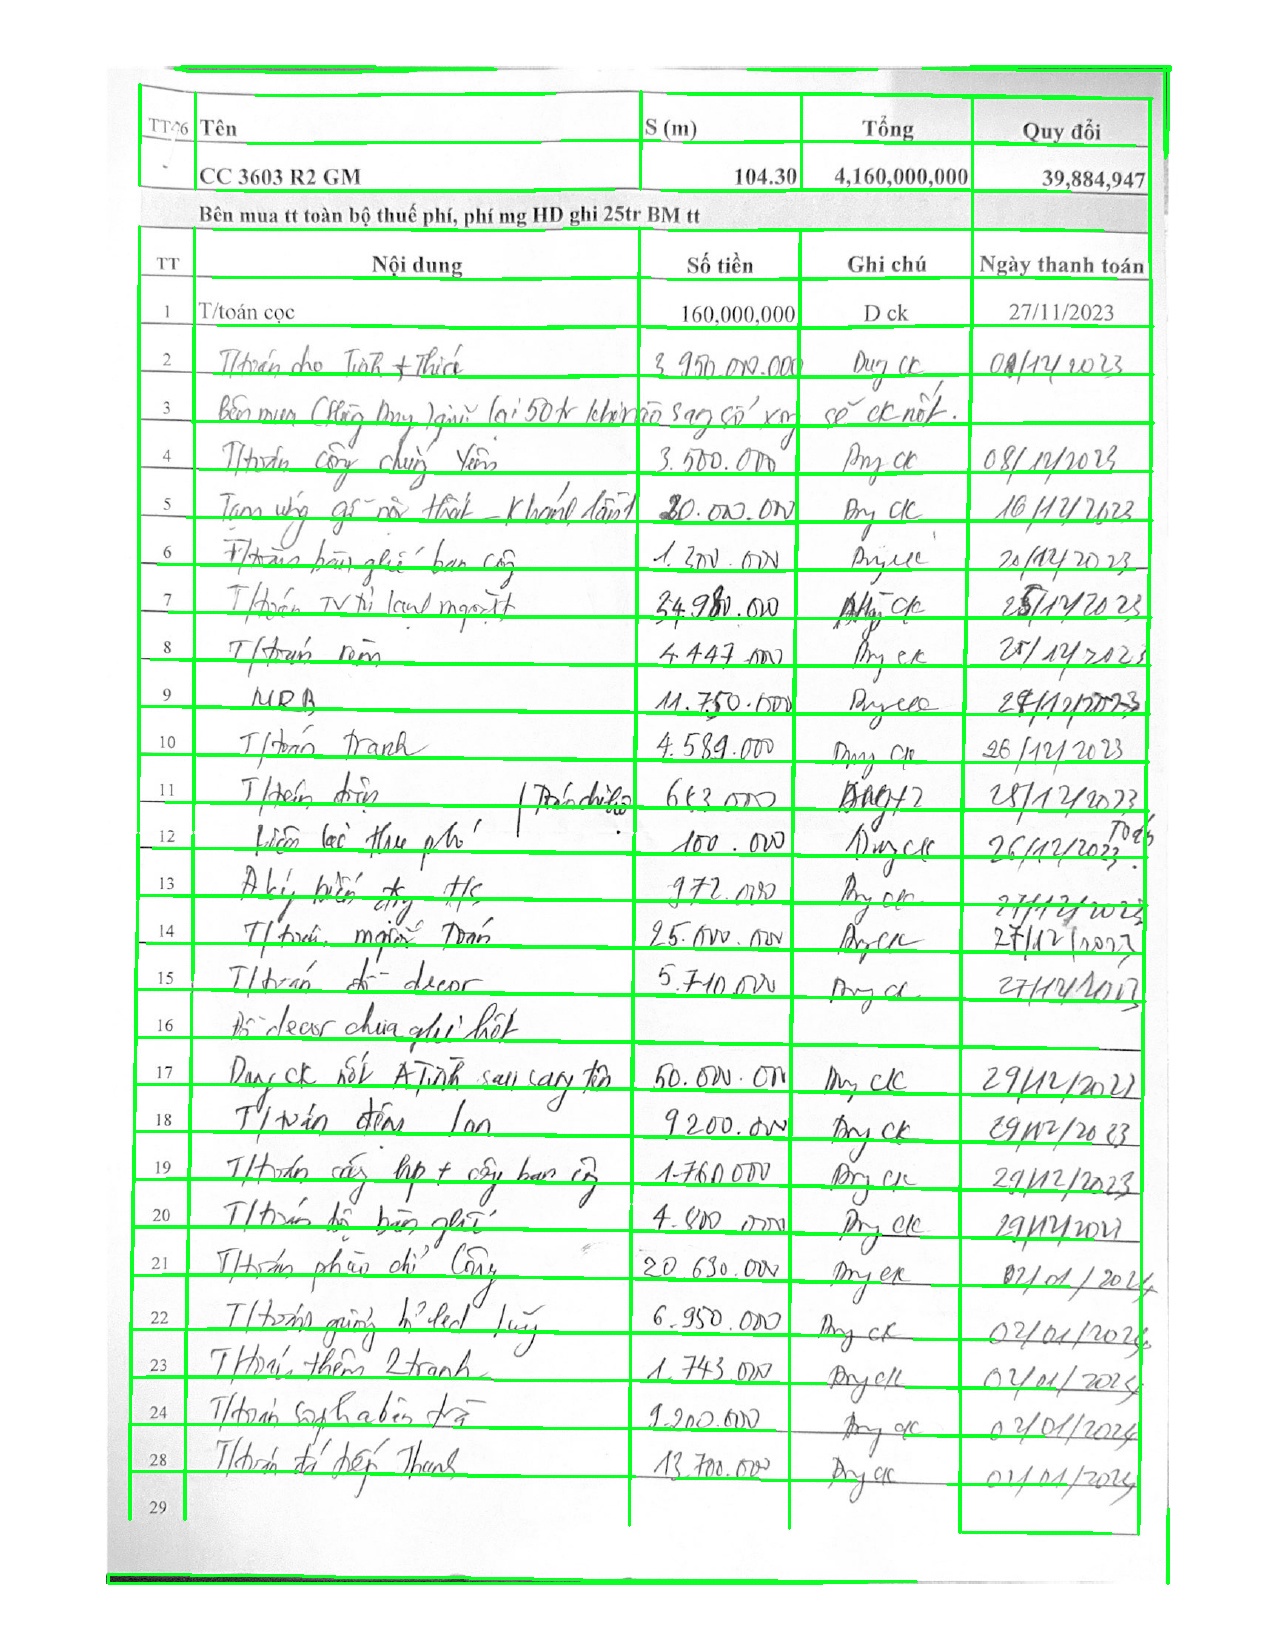 TT Tên S (m) Tổng Quy đổi
CC 3603 R2 GM 104.30 4,160,000,000 39,884,947
Bên mua tt toàn bộ thuế phí, phí mg HD ghi 25tr BM tt
TT Nội dung Số tiền Ghi chú Ngày thanh toán
1 T/toán cọc 160,000,000 D ck 27/11/2023
2 T/toán cho Tình + Thức 3.950.000.000 Duy ck 08/12/2023
3 Bên mua giữ lại 50tr khi nào sang sổ xong sẽ ck nốt.
4 T/toán công chứng Yên 3.500.000 Duy ck 08/12/2023
5 Tạm ứng gỗ nội thất - Khánh lần 1 30.000.000 Duy CK 16/12/2023
6 T/toán bàn ghế ban công 1.300.000 Duy ck 20/12/2023
7 T/toán TV tủ lạnh 34.980.000 CK 25/12/2023
8 T/toán rèm 4.447.000 Duy ck 25/12/2023
9 MRB 11.750.000 Duy ck /12/2023
10 T/toán tranh 4.589.000 Duy ck 26/12/2023
11 T/toán điện 000 /12/2023
12 phí 100.000 Duy ck 26/12/2023 Toán
13 972.000 Duy ck 27/12/2023
14 T/toán Toán 25.000.000 Duy CK 27/12/2023
15 T/toán đồ decor 5.710.000 Duy ck 27/12/2023
16 Đồ decor chưa ghi hết
17 Duy ck nốt A Tình sau sang tên 50.000.000 Duy CK 29/12/2023
18 T/toán đệm lan 9200.000 Duy CK 29/12/2023
19 T/toán cây + cây ban công 1.760.000 Duy CK 29/12/2023
20 T/toán bộ bàn ghế 4.800.000 Duy ck 29/12/2023
21 T/toán phào chỉ Công 20.630.000 Duy ck 02/01/2024
22 T/toán gương led 6.950.000 Duy ck 02/01/2024
23 T/toán thêm 2 tranh 1.743.000 Duy ck 02/01/2024
24 T/toán sopha bàn trà 9.200.000 Duy ck 02/01/2024
28 T/toán đá bếp Thanh 13.700.000 Duy ck 02/01/2024
29